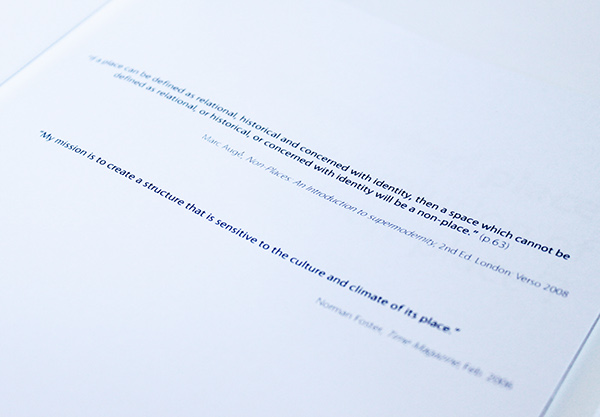 "If a place can be defined as relational, historical and concerned with identity, then a space which cannot be
defined as relational, or historical, or concerned with identity will be a non-place." (p.63)
Marc Augé, Non-Places: An introduction to supermodernity, 2nd Ed. London: Verso 2008
"My mission is to create a structure that is sensitive to the culture and climate of its place."
Norman Foster, Time Magazine, Feb.